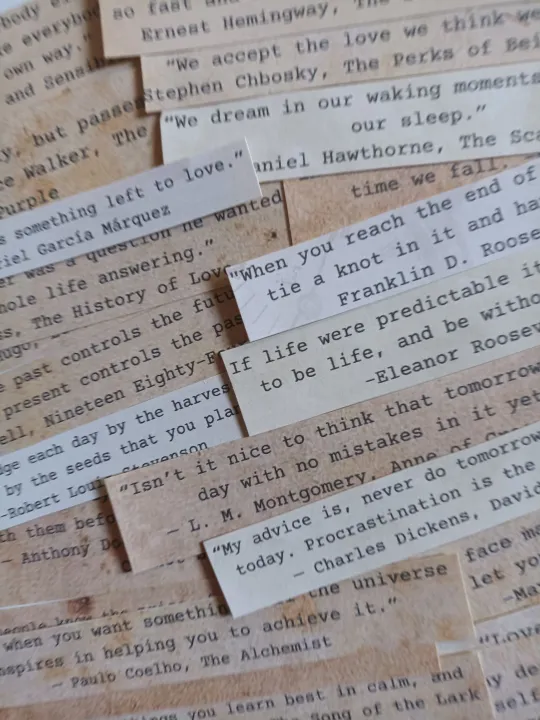 body e
e everybo
own way."
and Sensib
so fast a
Ernest Hemingway, The
"We accept the love we think we
Stephen Chbosky, The Perks of Bei
"We dream in our waking moments
our sleep."
aniel Hawthorne, The Sca
y, but passes
e Walker, The
Purple
s something left to love."
riel García Márquez
time we fall.
er was a question he wanted
hole life answering."
s, The History of Love
Hugo,
"When you reach the end of
tie a knot in it and ha
Franklin D. Roose
e past controls the futu
present controls the pas
ell, Nineteen Eighty-F
If life were predictable it
to be life, and be witho
-Eleanor Roosev
dge each day by the harves
by the seeds that you plan
-Robert Louis Stevenson
"Isn't it nice to think that tomorrow
day with no mistakes in it yet
— L. M. Montgomery, Anne of
th them befo
— Anthony Do
"My advice is, never do tomorrow
today. Procrastination is the
— Charles Dickens, David
people know the
when you want somethin
the universe
nspires in helping you to achieve it."
— Paulo Coelho, The Alchemist
face me
let yo
-Mar
"Love
y de
self
ngs you learn best in calm, and
song of the Lark